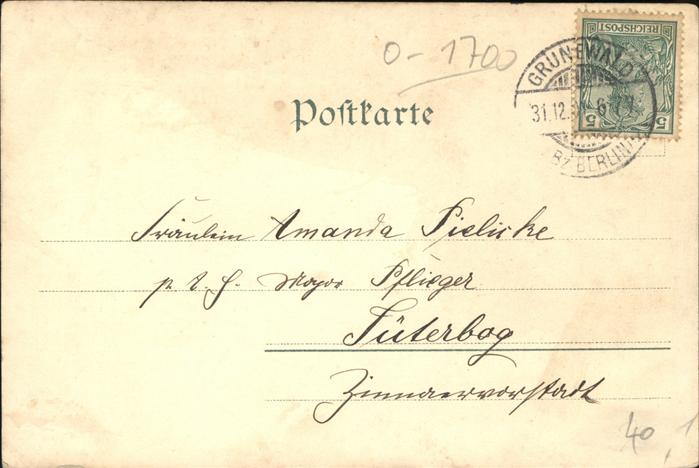 0-1700
REICHSPOST
5 5
GRUNEWALD
31.12. 6-7
BZ BERLIN
Postkarte
Fräulein Amanda Pielicke
p. t. H. Major Pflieger
Jüterbog
Zinnaervorstadt
40
1